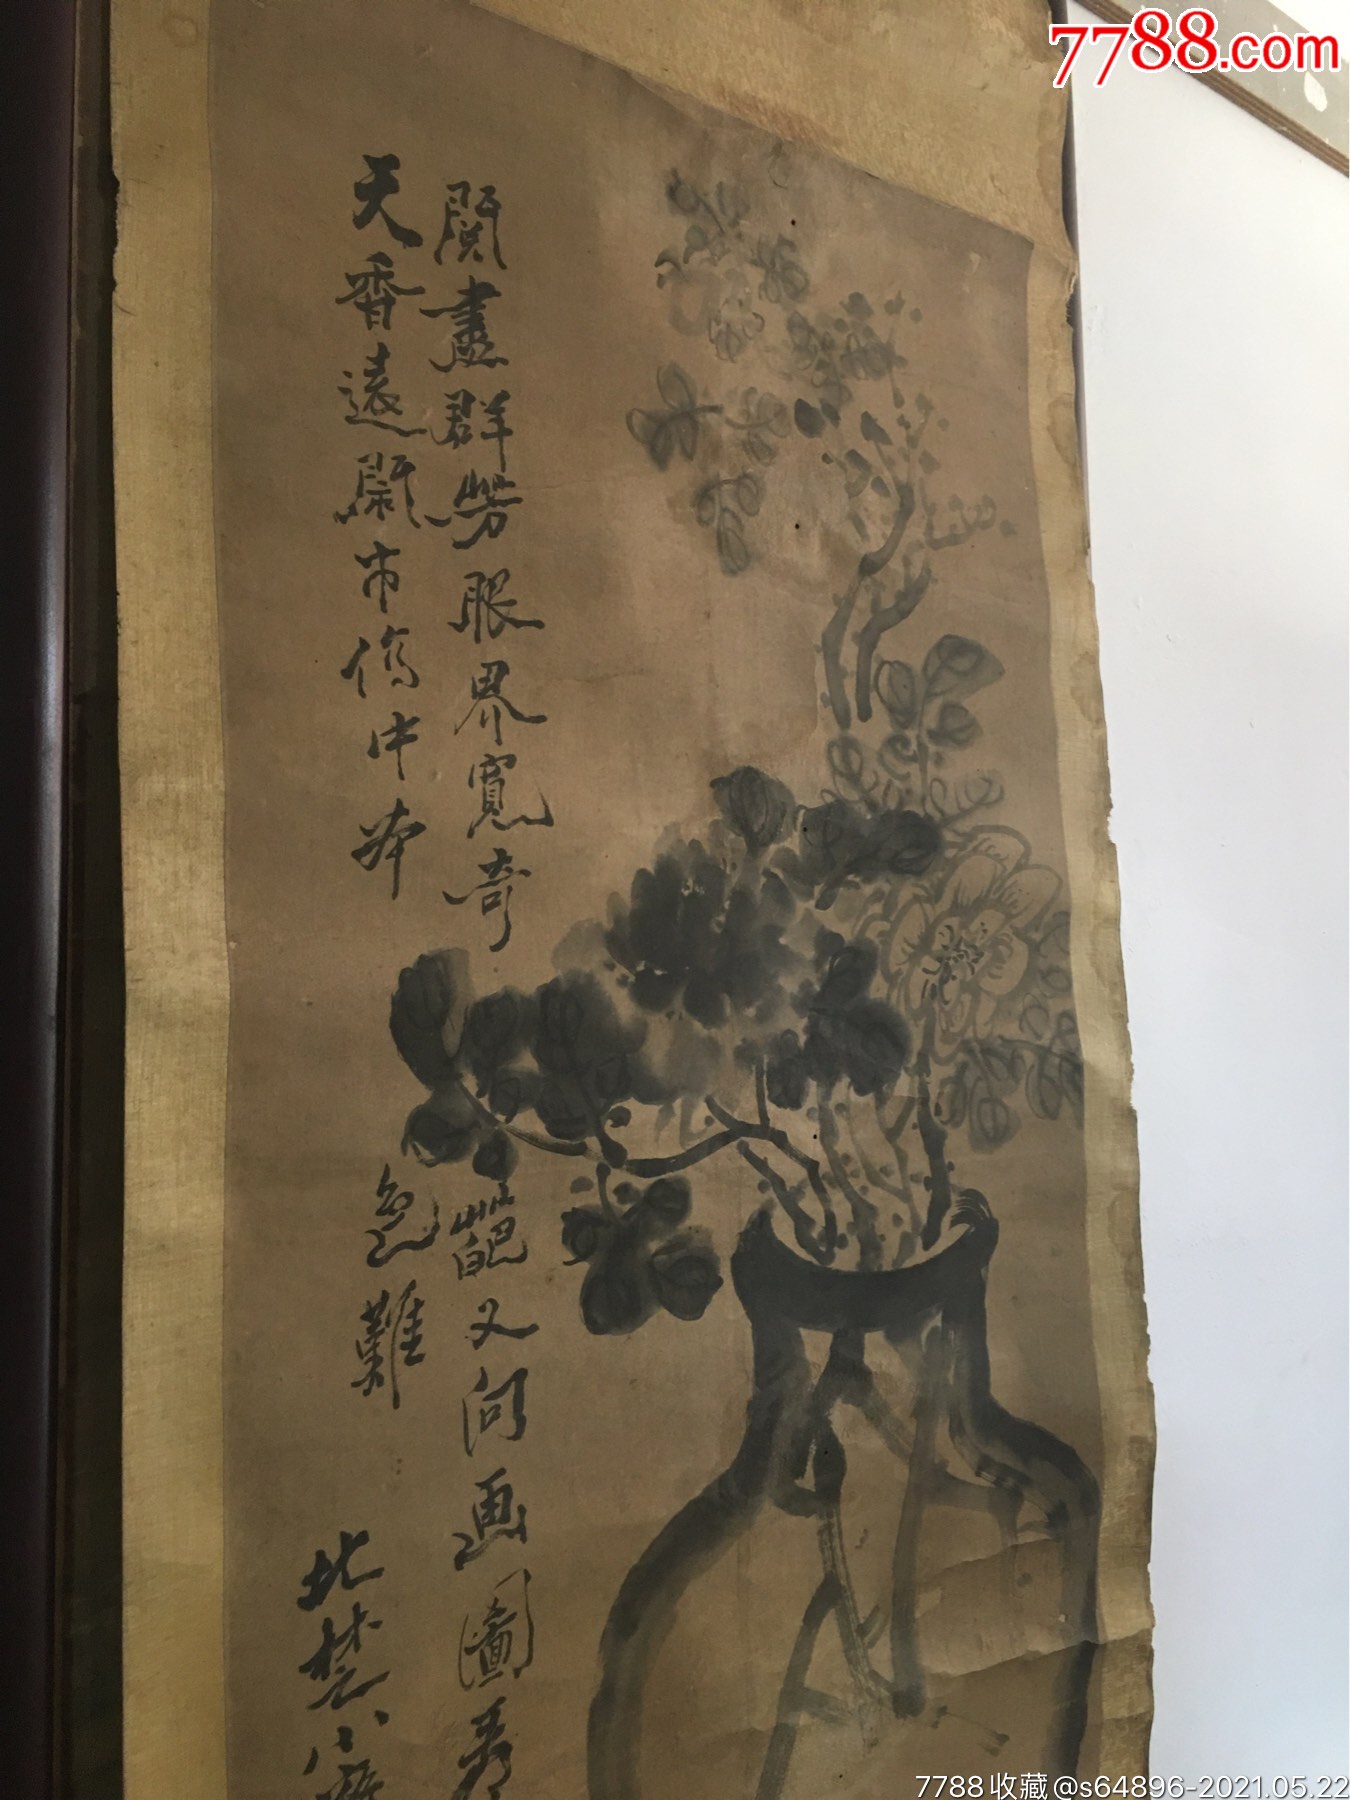 7788.com
閱盡群芳眼界寬奇葩又向画圖看
天香遠市中色難
北楚小
7788收藏@s64896-2021.05.22